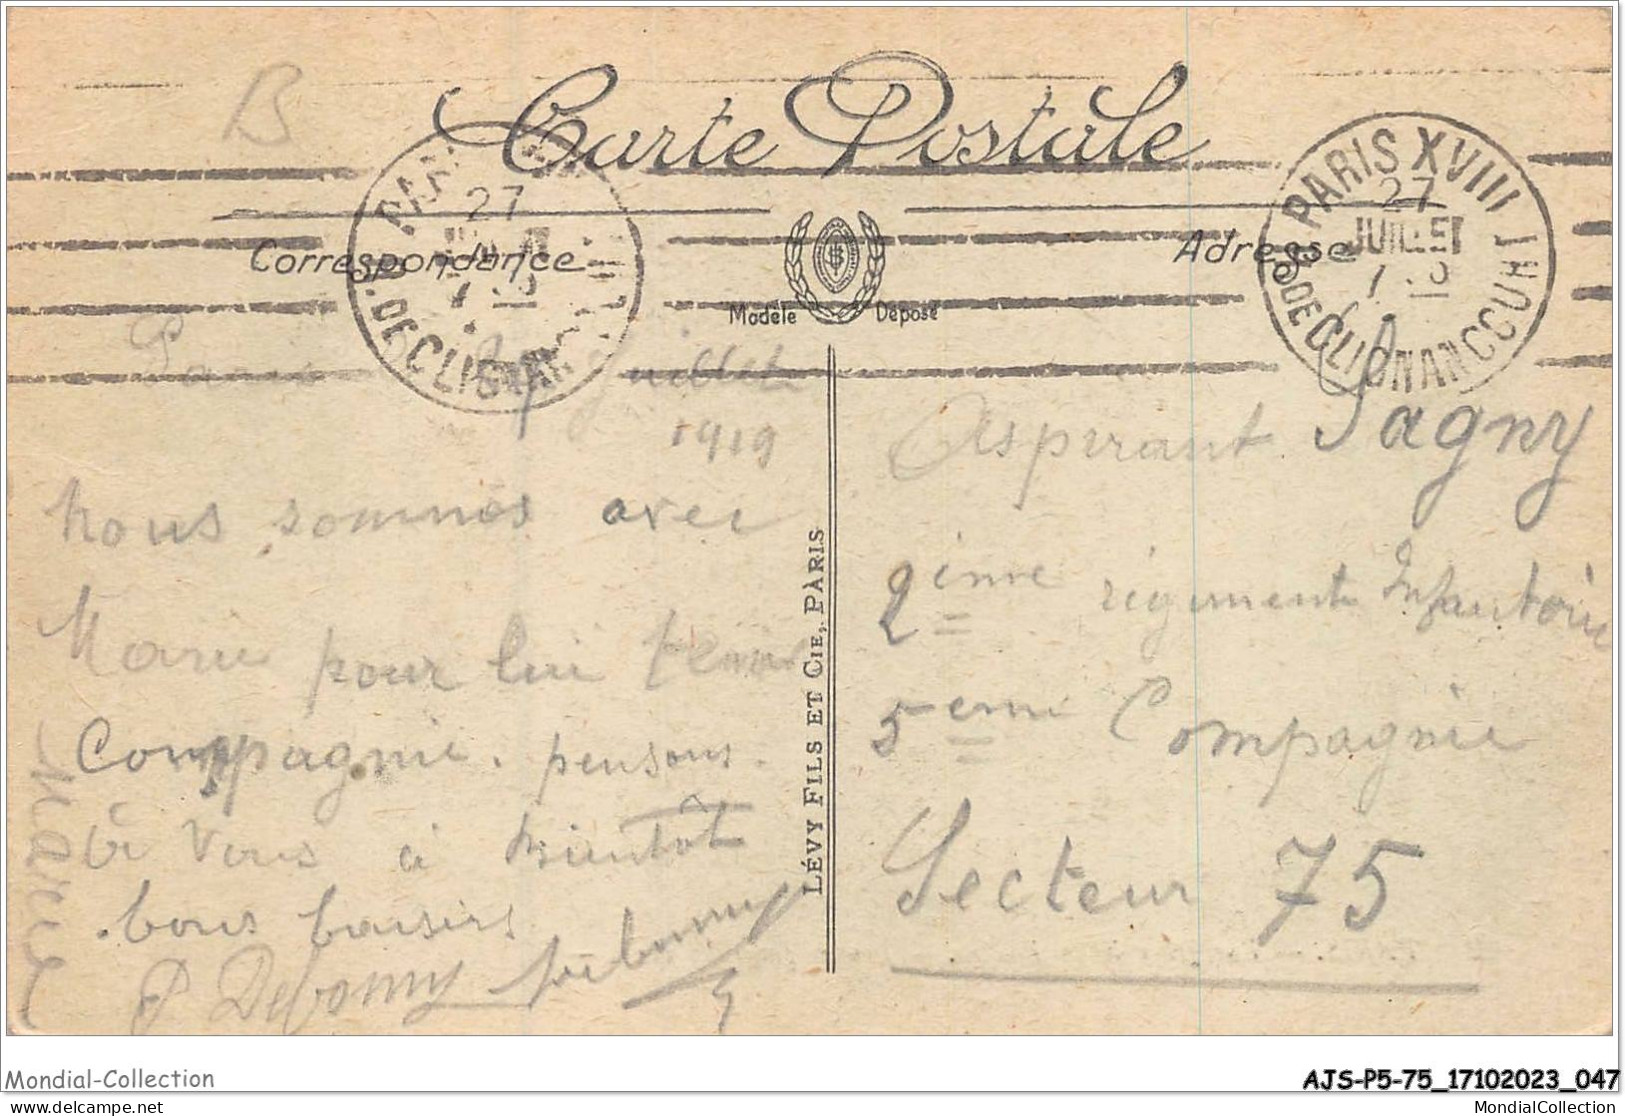 B
Carte Postale
PARIS XVIII
27
JUILLET
R. DE CLIGNANCOURT
Correspondance
Adresse
Modèle Déposé
Paris 27 Juillet
1919
Nous sommes avec
Marie pour lui tenir
Compagnie. pensons
à Vous à bientôt
bons baisers
P Debonny
Marie
LÉVY FILS ET CIE, PARIS
Aspirant Pagny
2ième régiment Infanterie
5eme Compagnie
Secteur 75
Mondial-Collection
AJS-P5-75_17102023_047
delcampe.net
MondialCollection